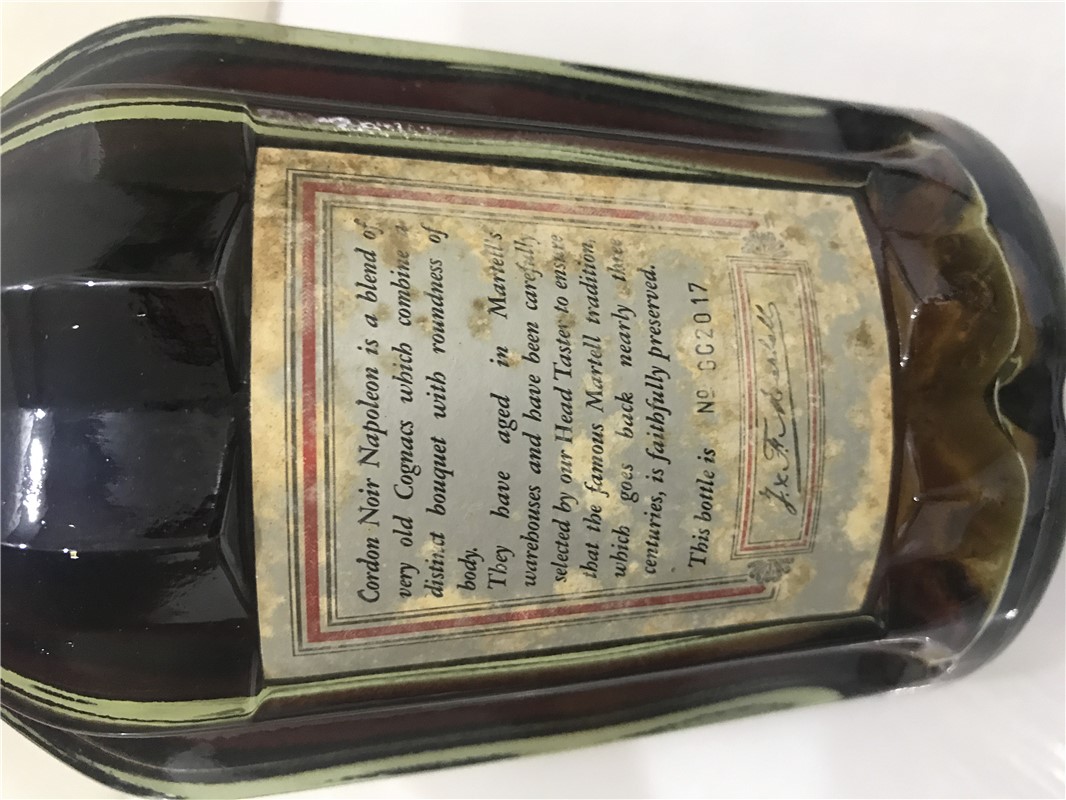 Cordon Noir Napoleon is a blend of
very old Cognacs which combine a
distinct bouquet with roundness of
body.
They have aged in Martell's
warehouses and have been carefully
selected by our Head Taster to ensure
that the famous Martell tradition,
which goes back nearly three
centuries, is faithfully preserved.
This bottle is Nº GC2017
J. & F. Martell